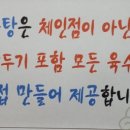 탕은 체인점이 아닌
두기 포함 모든 육수
접 만들어 제공합니